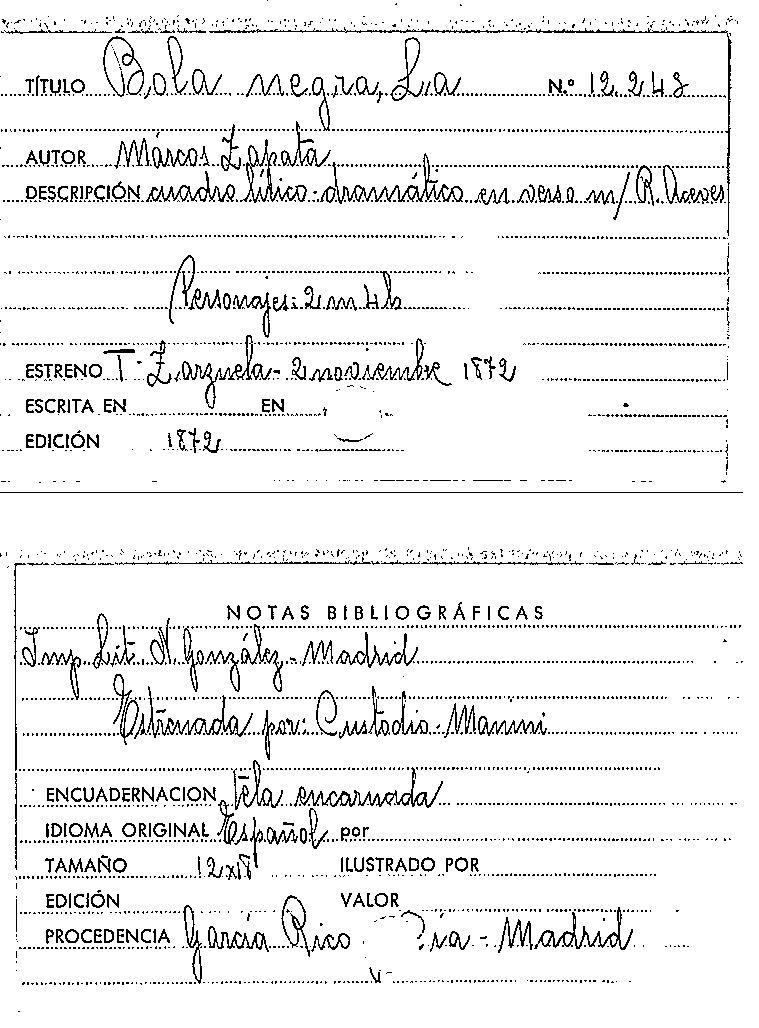 TÍTULO Bola negra, La N.º 12.248
AUTOR Márcos Zapata
DESCRIPCIÓN cuadro lílico-dramático en verso m/ R. Aceves
Personajes: 2 m 4 h
ESTRENO T. Zarzuela - 2 noviembre 1872
ESCRITA EN EN
EDICIÓN 1872
NOTAS BIBLIOGRÁFICAS
Imp. Lit. N. González - Madrid
Estrenada por: Custodio - Manini
ENCUADERNACION tela encarnada
IDIOMA ORIGINAL Español por
TAMAÑO 12x18 ILUSTRADO POR
EDICIÓN VALOR
PROCEDENCIA García Rico - Madrid